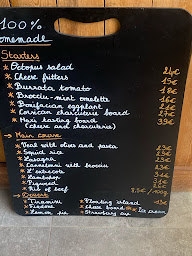 100%
omemade
Starters
Octopus salad 24€
Cheese fritters 15€
Burrata tomato 18€
Brocciu-mint omelette 16€
Bonifacian eggplant 21€
Corsican charcuterie board 27€
Maxi tasting board 39€
(cheese and charcuterie)
Main course
Veal with olives and pasta 23€
Squid rice
Lasagna
Cannelloni with brocciu
L'entrecote
Lambchop
Figured
Rib of beef 7.5€/100g
Dessert
Tiramisu
Fiadone
Lemon pie
Floating island
Cheese board
Strawberry cup
Ice cream